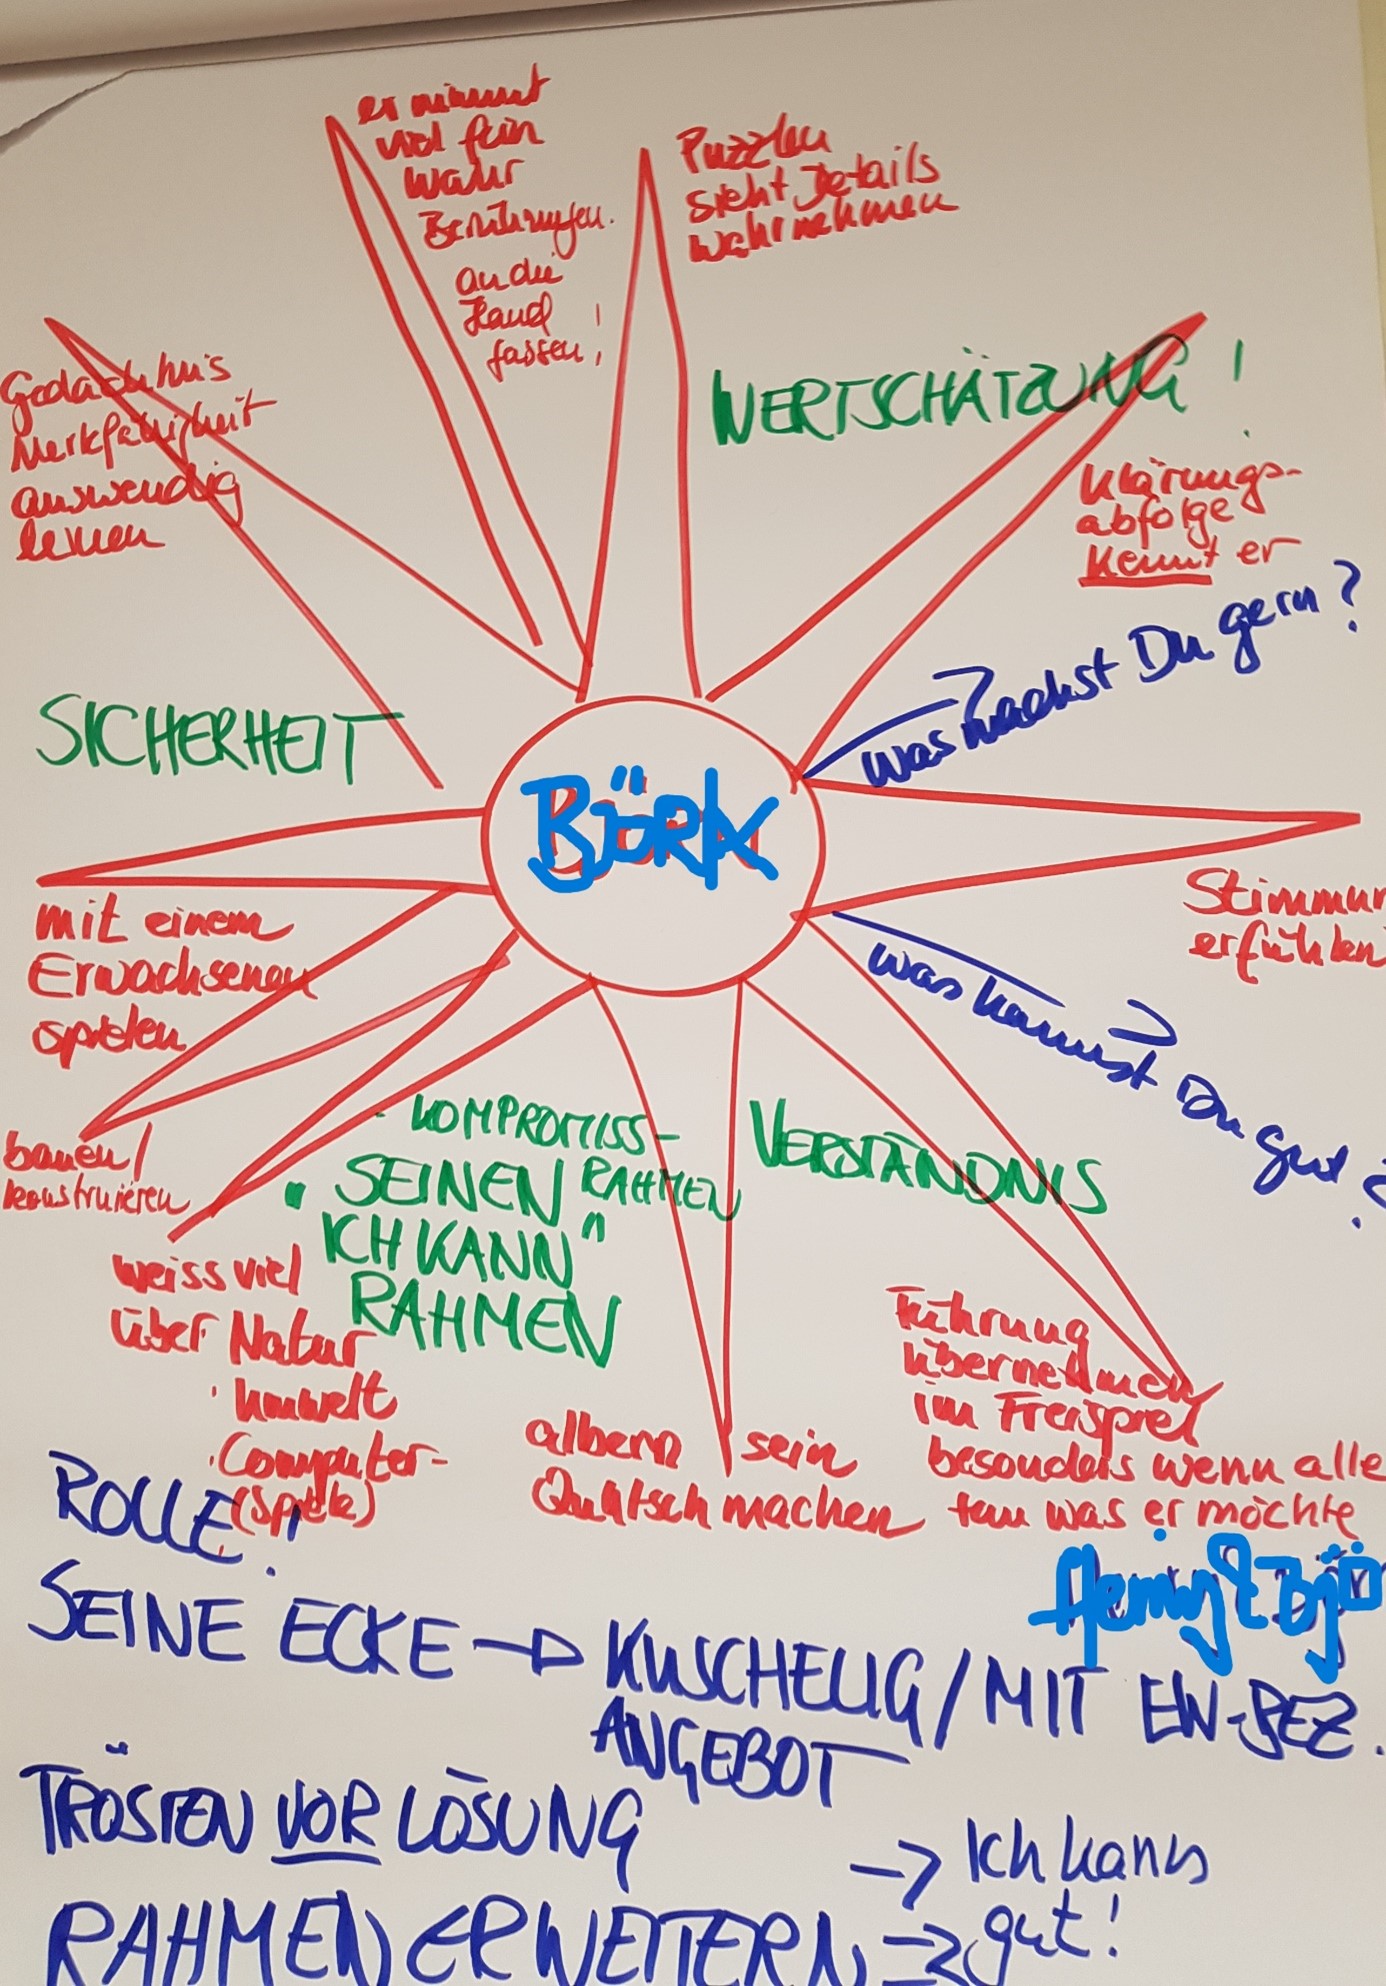 er nimmt
viel fein
wahr
Berührungen.
an die
Hand
fassen!
Puzzlen
sieht Details
wahrnehmen
Gedächtnis
Merkfähigkeit
auswendig
lernen
WERTSCHÄTZUNG!
Klärungs-
abfolge
kennt er
Was machst Du gern?
SICHERHEIT
BJÖRK
Stimmun
erfühlen
mit einem
Erwachsenen
spielen
was kannst Du gut?
bauen/
konstruieren
KOMPROMISS-
SEINEN RAHMEN
"ICH KANN"
RAHMEN
VERSTÄNDNIS
weiss viel
über Natur
· Umwelt
· Computer-
(Spiele)
albern sein
Quatsch machen
Führung
übernehmen
im Freispiel
besonders wenn alle
tun was er möchte
ROLLE!
SEINE ECKE → KUSCHELIG/MIT EIN-BEZ.
ANGEBOT
TRÖSTEN VOR LÖSUNG
→ Ich kann
RAHMEN ERWEITERN → gut!